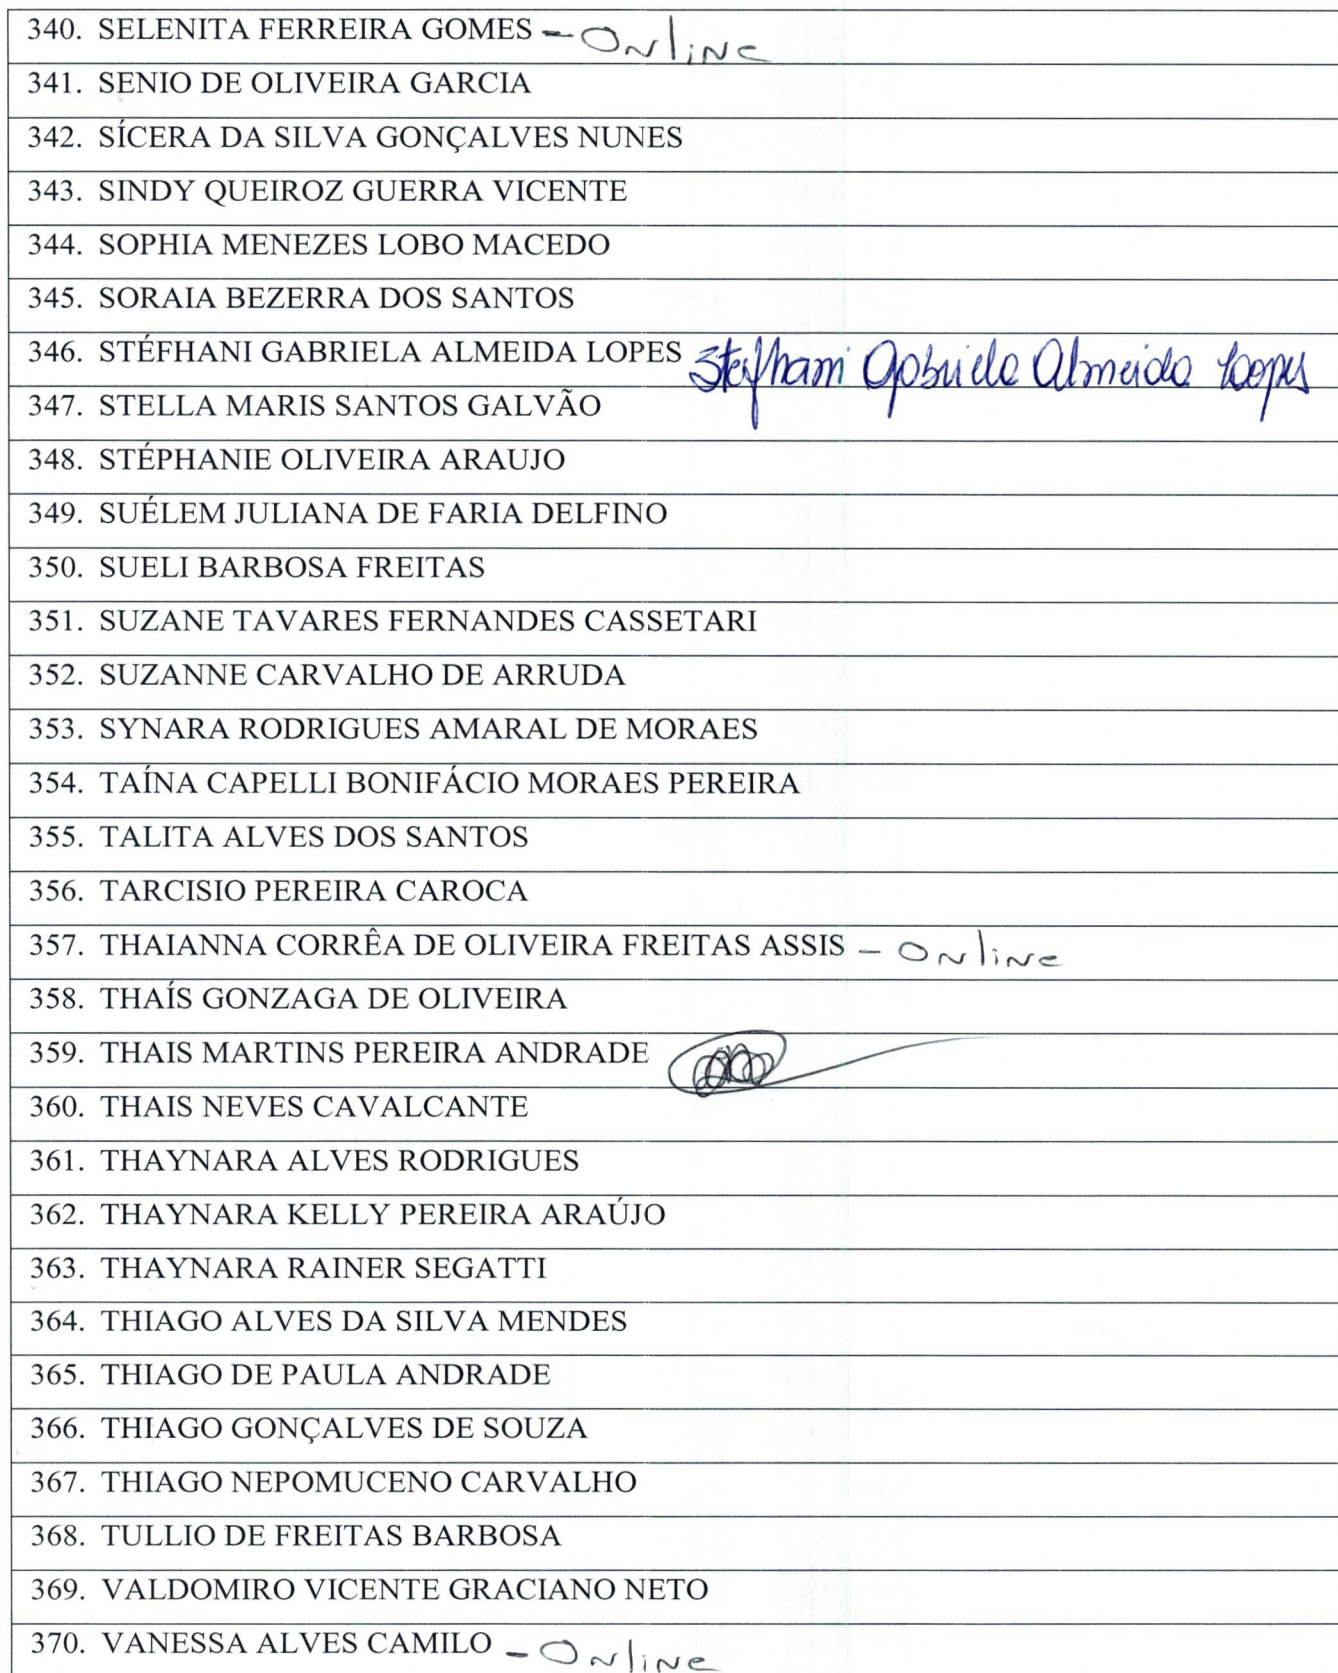 340. SELENITA FERREIRA GOMES - Online
341. SENIO DE OLIVEIRA GARCIA
342. SÍCERA DA SILVA GONÇALVES NUNES
343. SINDY QUEIROZ GUERRA VICENTE
344. SOPHIA MENEZES LOBO MACEDO
345. SORAIA BEZERRA DOS SANTOS
346. STÉFHANI GABRIELA ALMEIDA LOPES Stefhani Gabriela Almeida Lopes
347. STELLA MARIS SANTOS GALVÃO
348. STÉPHANIE OLIVEIRA ARAUJO
349. SUÉLEM JULIANA DE FARIA DELFINO
350. SUELI BARBOSA FREITAS
351. SUZANE TAVARES FERNANDES CASSETARI
352. SUZANNE CARVALHO DE ARRUDA
353. SYNARA RODRIGUES AMARAL DE MORAES
354. TAÍNA CAPELLI BONIFÁCIO MORAES PEREIRA
355. TALITA ALVES DOS SANTOS
356. TARCISIO PEREIRA CAROCA
357. THAIANNA CORRÊA DE OLIVEIRA FREITAS ASSIS - Online
358. THAÍS GONZAGA DE OLIVEIRA
359. THAIS MARTINS PEREIRA ANDRADE
360. THAIS NEVES CAVALCANTE
361. THAYNARA ALVES RODRIGUES
362. THAYNARA KELLY PEREIRA ARAÚJO
363. THAYNARA RAINER SEGATTI
364. THIAGO ALVES DA SILVA MENDES
365. THIAGO DE PAULA ANDRADE
366. THIAGO GONÇALVES DE SOUZA
367. THIAGO NEPOMUCENO CARVALHO
368. TULLIO DE FREITAS BARBOSA
369. VALDOMIRO VICENTE GRACIANO NETO
370. VANESSA ALVES CAMILO - Online